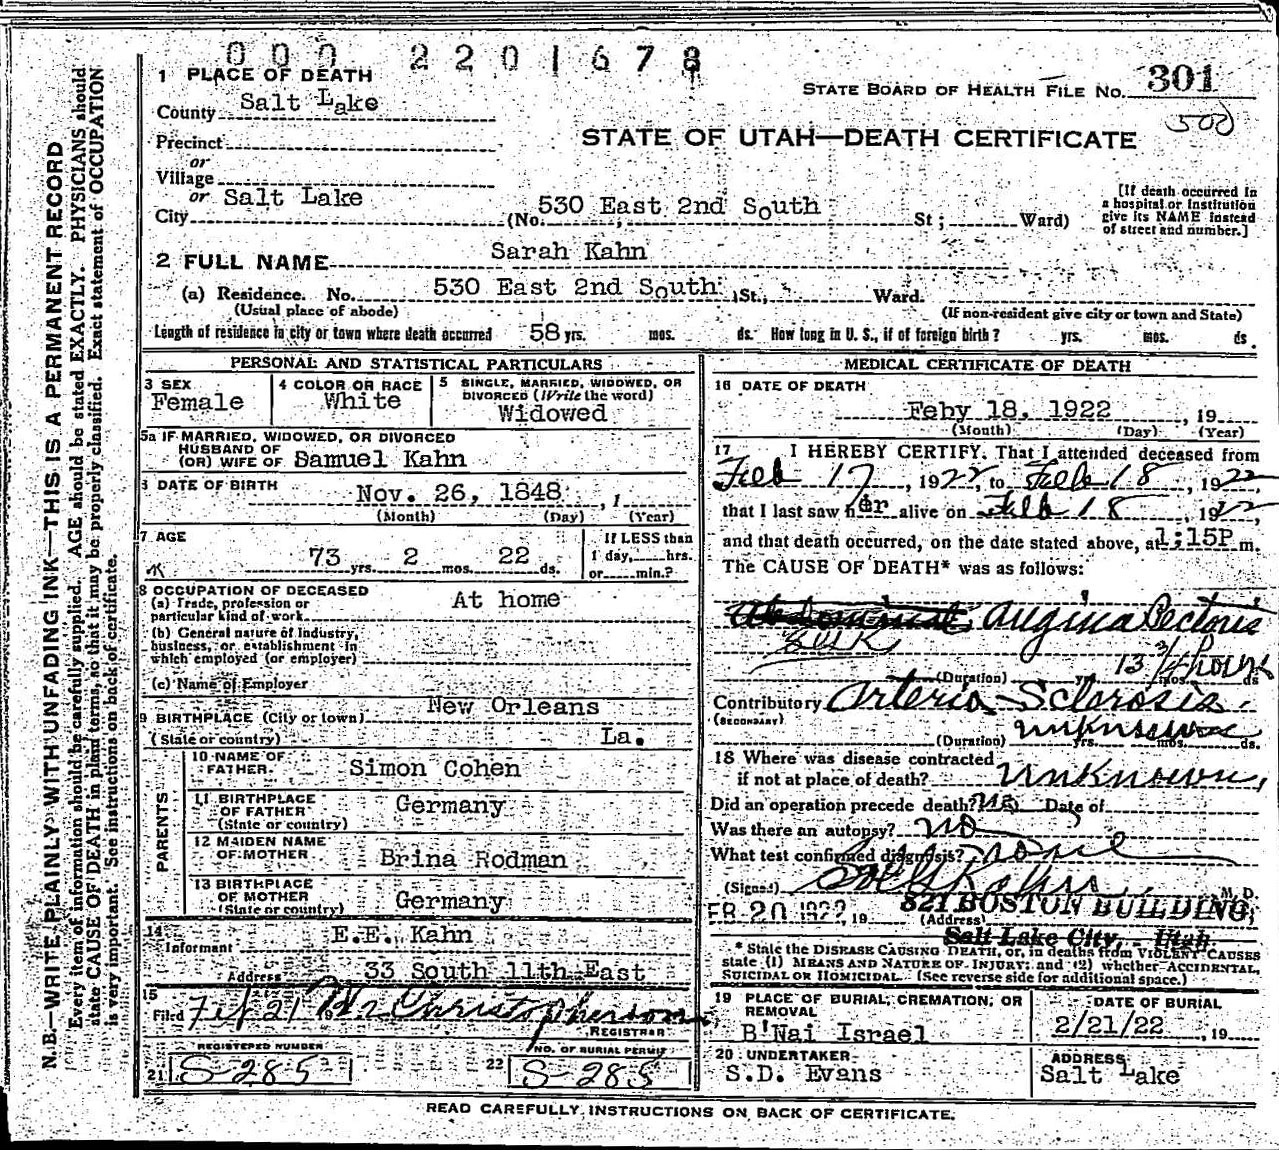 000 2201678
1 PLACE OF DEATH
County Salt Lake
STATE BOARD OF HEALTH FILE NO. 301
500
Precinct
or
Village
or
City Salt Lake (No. 530 East 2nd South St; Ward)
STATE OF UTAH—DEATH CERTIFICATE
[If death occurred in
a hospital or institution
give its NAME instead
of street and number.]
2 FULL NAME Sarah Kahn
(a) Residence. No. 530 East 2nd South St., Ward.
(Usual place of abode) (If non-resident give city or town and State)
Length of residence in city or town where death occurred 58 yrs. mos. ds. How long in U. S., if of foreign birth? yrs. mos. ds.
PERSONAL AND STATISTICAL PARTICULARS
3 SEX
Female
4 COLOR OR RACE
White
5 SINGLE, MARRIED, WIDOWED, OR
DIVORCED (Write the word)
Widowed
5a IF MARRIED, WIDOWED, OR DIVORCED
HUSBAND OF
(OR) WIFE OF Samuel Kahn
6 DATE OF BIRTH Nov. 26, 1848
(Month) (Day) (Year)
7 AGE
73 yrs. 2 mos. 22 ds.
If LESS than
1 day, hrs.
or min.?
8 OCCUPATION OF DECEASED
(a) Trade, profession or
particular kind of work At home
(b) General nature of Industry,
business, or establishment in
which employed (or employer)
(c) Name of Employer
9 BIRTHPLACE (City or town) New Orleans
(State or country) La.
PARENTS
10 NAME OF
FATHER Simon Cohen
11 BIRTHPLACE
OF FATHER
(State or country) Germany
12 MAIDEN NAME
OF MOTHER Brina Rodman
13 BIRTHPLACE
OF MOTHER
(State or country) Germany
14
Informant E.E. Kahn
Address 33 South 11th East
15
Filed Feb 21 Christopherson
REGISTRAR
REGISTERED NUMBER
21 S-285
NO. OF BURIAL PERMIT
22 S-285
MEDICAL CERTIFICATE OF DEATH
16 DATE OF DEATH
Feby 18, 1922, 19
(Month) (Day) (Year)
17 I HEREBY CERTIFY, That I attended deceased from
Feb 17, 1922, to Feb 18, 1922
that I last saw her alive on Feb 18, 1922
and that death occurred, on the date stated above, at 1:15P m.
The CAUSE OF DEATH* was as follows:
Abdominal Angina Pectoris
SGK
13 3/4 hours
(Duration) yrs. mos. ds
Contributory Arterio-Sclerosis.
(SECONDARY)
(Duration) unknown yrs. mos. ds.
18 Where was disease contracted
if not at place of death? Unknown,
Did an operation precede death? No Date of
Was there an autopsy? No
What test confirmed diagnosis? None
(Signed) Sol G Kahn M. D.
FEB 20 1922, 19 (Address) 821 BOSTON BUILDING,
Salt Lake City, - Utah.
* State the DISEASE CAUSING DEATH, or, in deaths from VIOLENT CAUSES
state (1) MEANS AND NATURE OF INJURY; and (2) whether ACCIDENTAL,
SUICIDAL OR HOMICIDAL. (See reverse side for additional space.)
19 PLACE OF BURIAL, CREMATION, OR
REMOVAL
B'Nai Israel
DATE OF BURIAL
2/21/22, 19
20 UNDERTAKER
S.D. Evans
ADDRESS
Salt Lake
READ CAREFULLY INSTRUCTIONS ON BACK OF CERTIFICATE.
N. B.—WRITE PLAINLY WITH UNFADING INK—THIS IS A PERMANENT RECORD
Every item of information should be carefully supplied. AGE should be stated EXACTLY. PHYSICIANS should
state CAUSE OF DEATH in plain terms, so that it may be properly classified. Exact statement of OCCUPATION
is very important. See instructions on back of certificate.